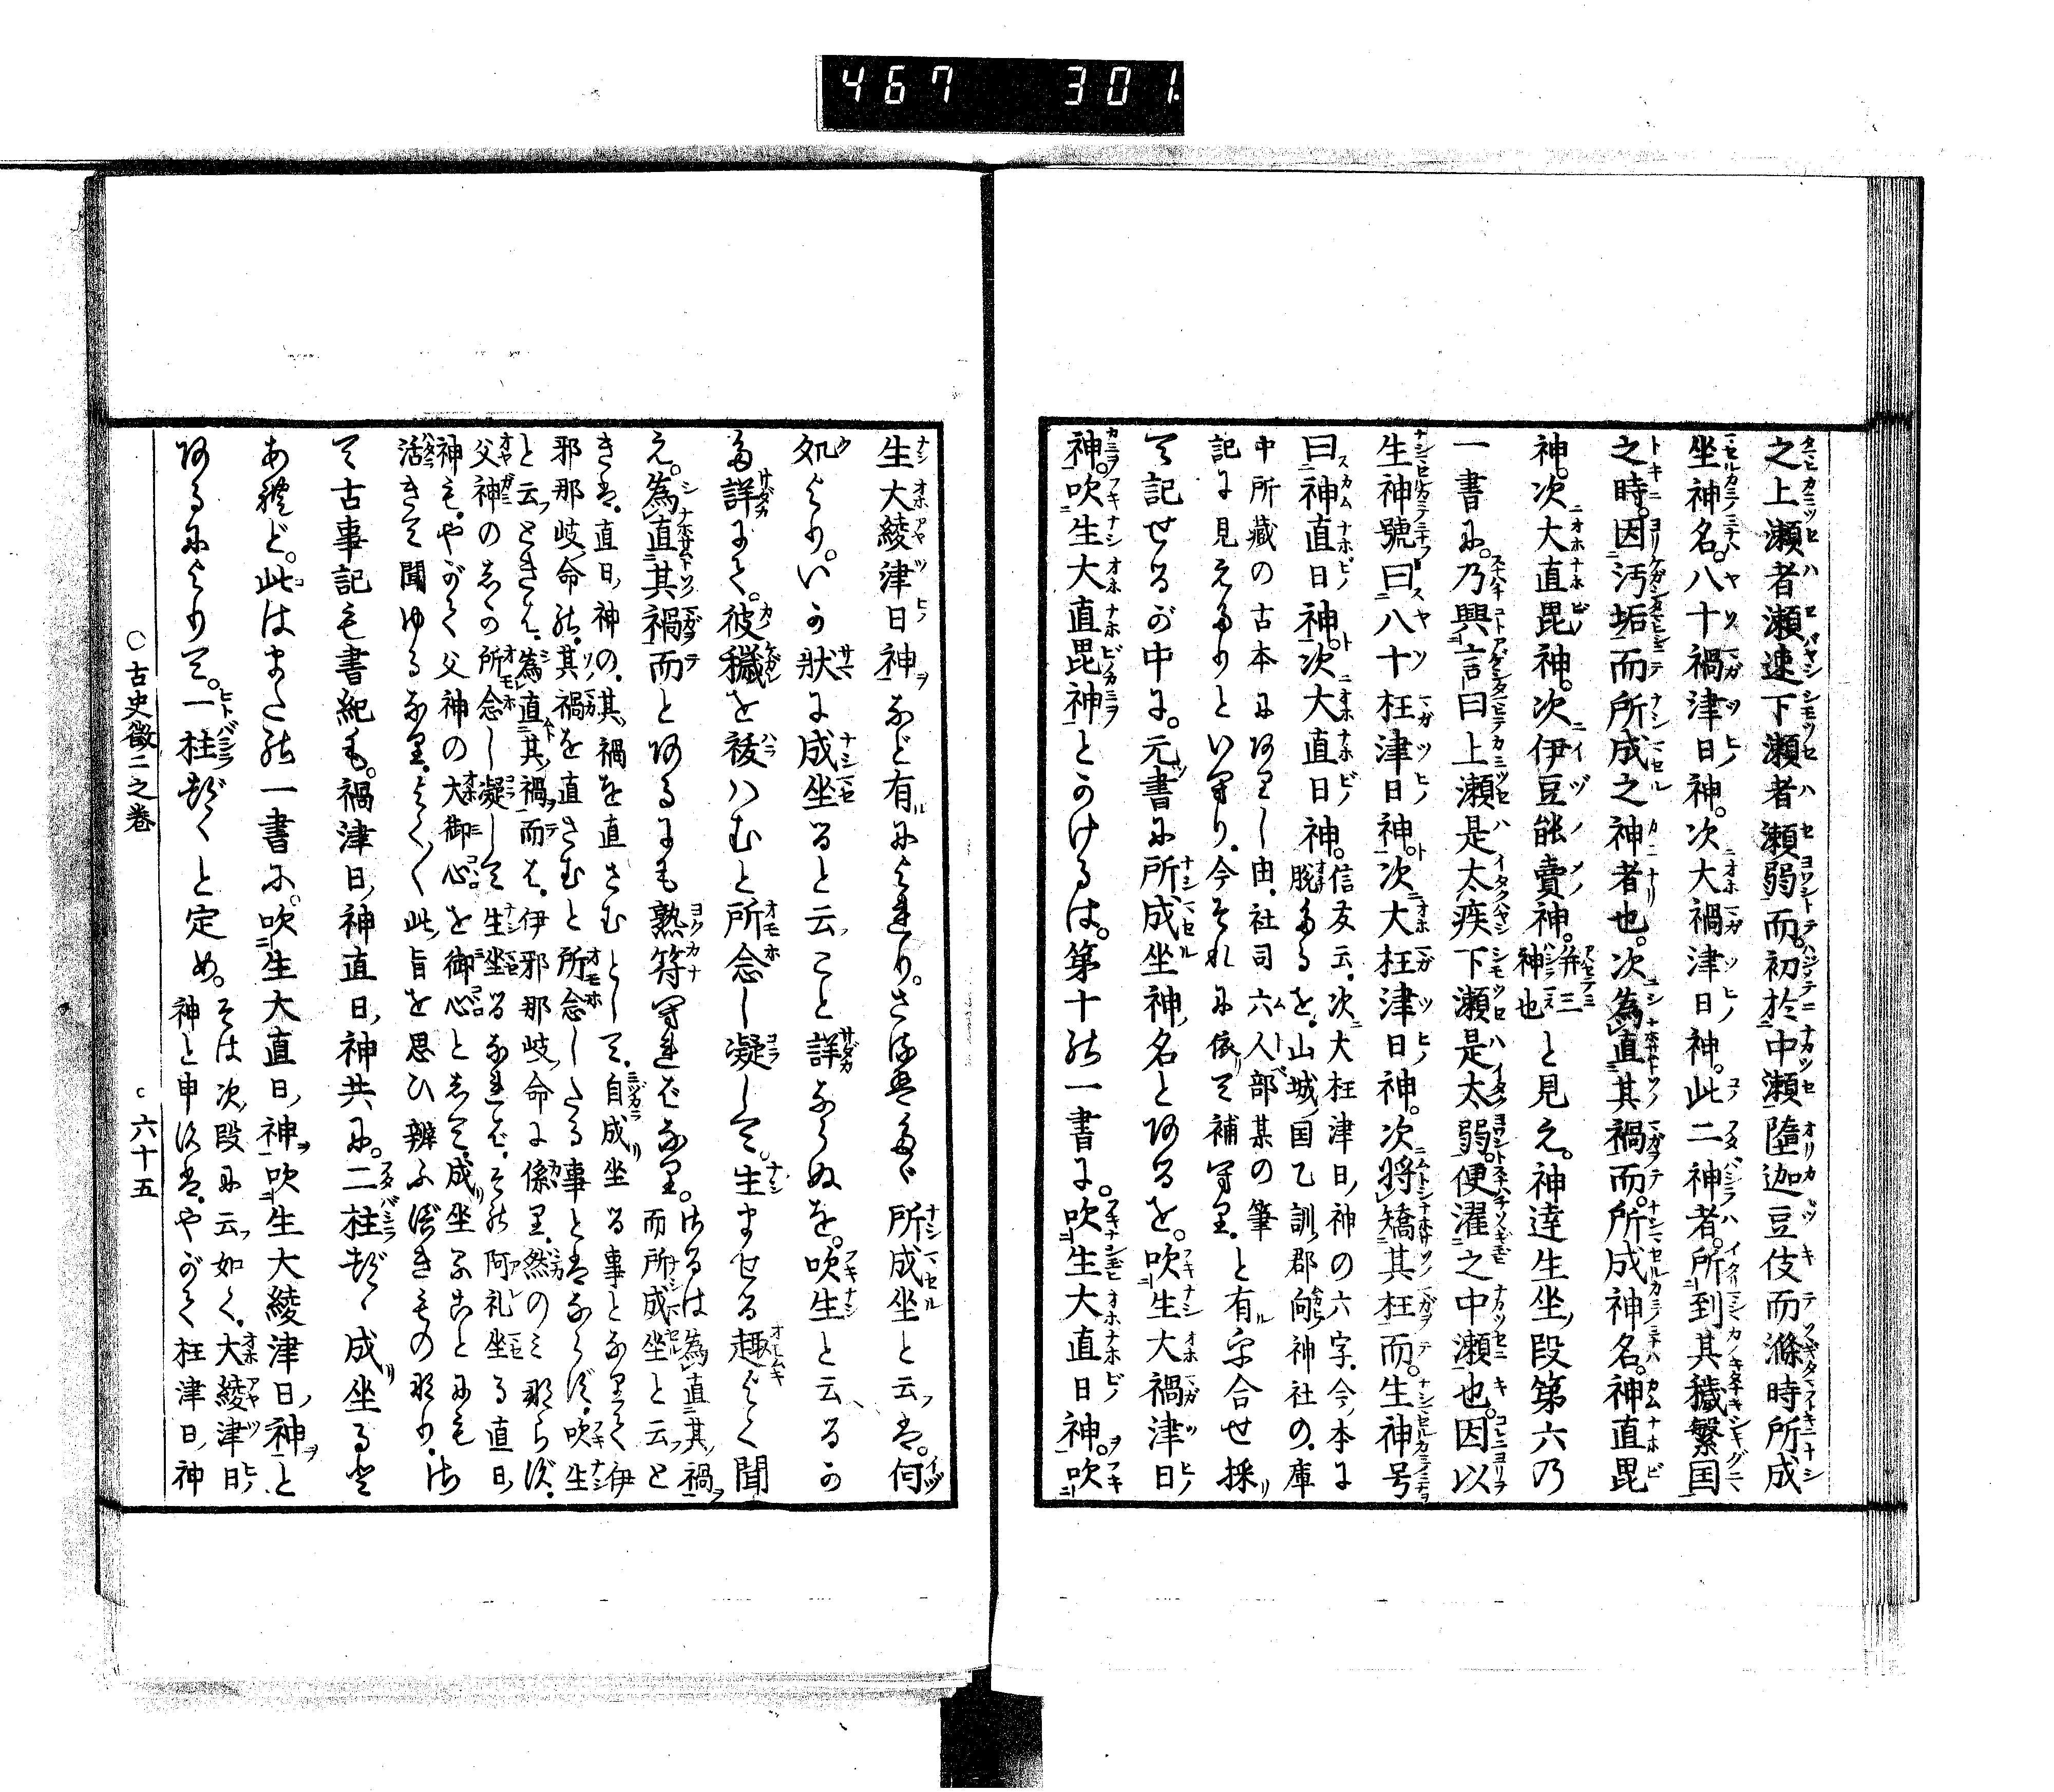 467 301
之上瀬者瀬速下瀬者瀬弱而。初於中瀬墮迦豆伎而滌時所成
坐神名。八十禍津日神。次大禍津日神。此二神者。所到其穢繁国
之時。因汚垢而所成之神者也。次為直其禍而。所成神名。神直毘
神。次大直毘神。次伊豆能賣神。并三神也と見え。神逹生坐段第六乃
一書に。乃興言曰上瀬是太疾下瀬是太弱。便濯之中瀬也。因以
生神號曰八十枉津日神。次大枉津日神。次将矯其枉而。生神号
曰神直日神。次大直日神。信友云。次大枉津日神の六字。今本に
脱たるを。山城国乙訓郡向神社の。庫
中所藏の古本にありし由。社司六人部某の筆
記に見えたりといへり。今それに依て補へり。と有字合せ採
て記せるが中に。元書に所成坐神名とあるを。吹生大禍津日
神。吹生大直毘神とかけるは。第十の一書に。吹生大直日神。吹
生大綾津日神など有によれり。さるはたゞ所成坐と云は。何
処より。いか状に成坐ると云こと詳ならぬを。吹生と云るか
た詳にて。彼穢を祓ハむと所念し凝して。生ませる趣よく聞
え。為直其禍而とあるにも熟符へればなり。さるは為直其禍
而所成坐と云と
きは。直日神の。其禍を直さむとして。自成坐る事となりて伊
邪那岐命の。其禍を直さむと所念したる事とはならず。吹生
と云ときは。為直其禍而は。伊邪那岐命に係り。然のみならず。
父神のしか所念し凝して生坐るなれば。その阿礼坐る直日
神も。やがて父神の大御心を御心として。成坐ることにも
活きて聞ゆるなり。よく〳〵此旨を思ひ辨ふべきものなり。さ
て古事記も書紀も。禍津日神直日神共に。二柱づゝ成坐るを
あれど。此はまたの一書に。吹生大直日神吹生大綾津日神と
あるによりて。一柱づゝと定め。そは次段に云如く。大綾津日
神と申すは。やがて枉津日神
○古史徴二之巻
六十五